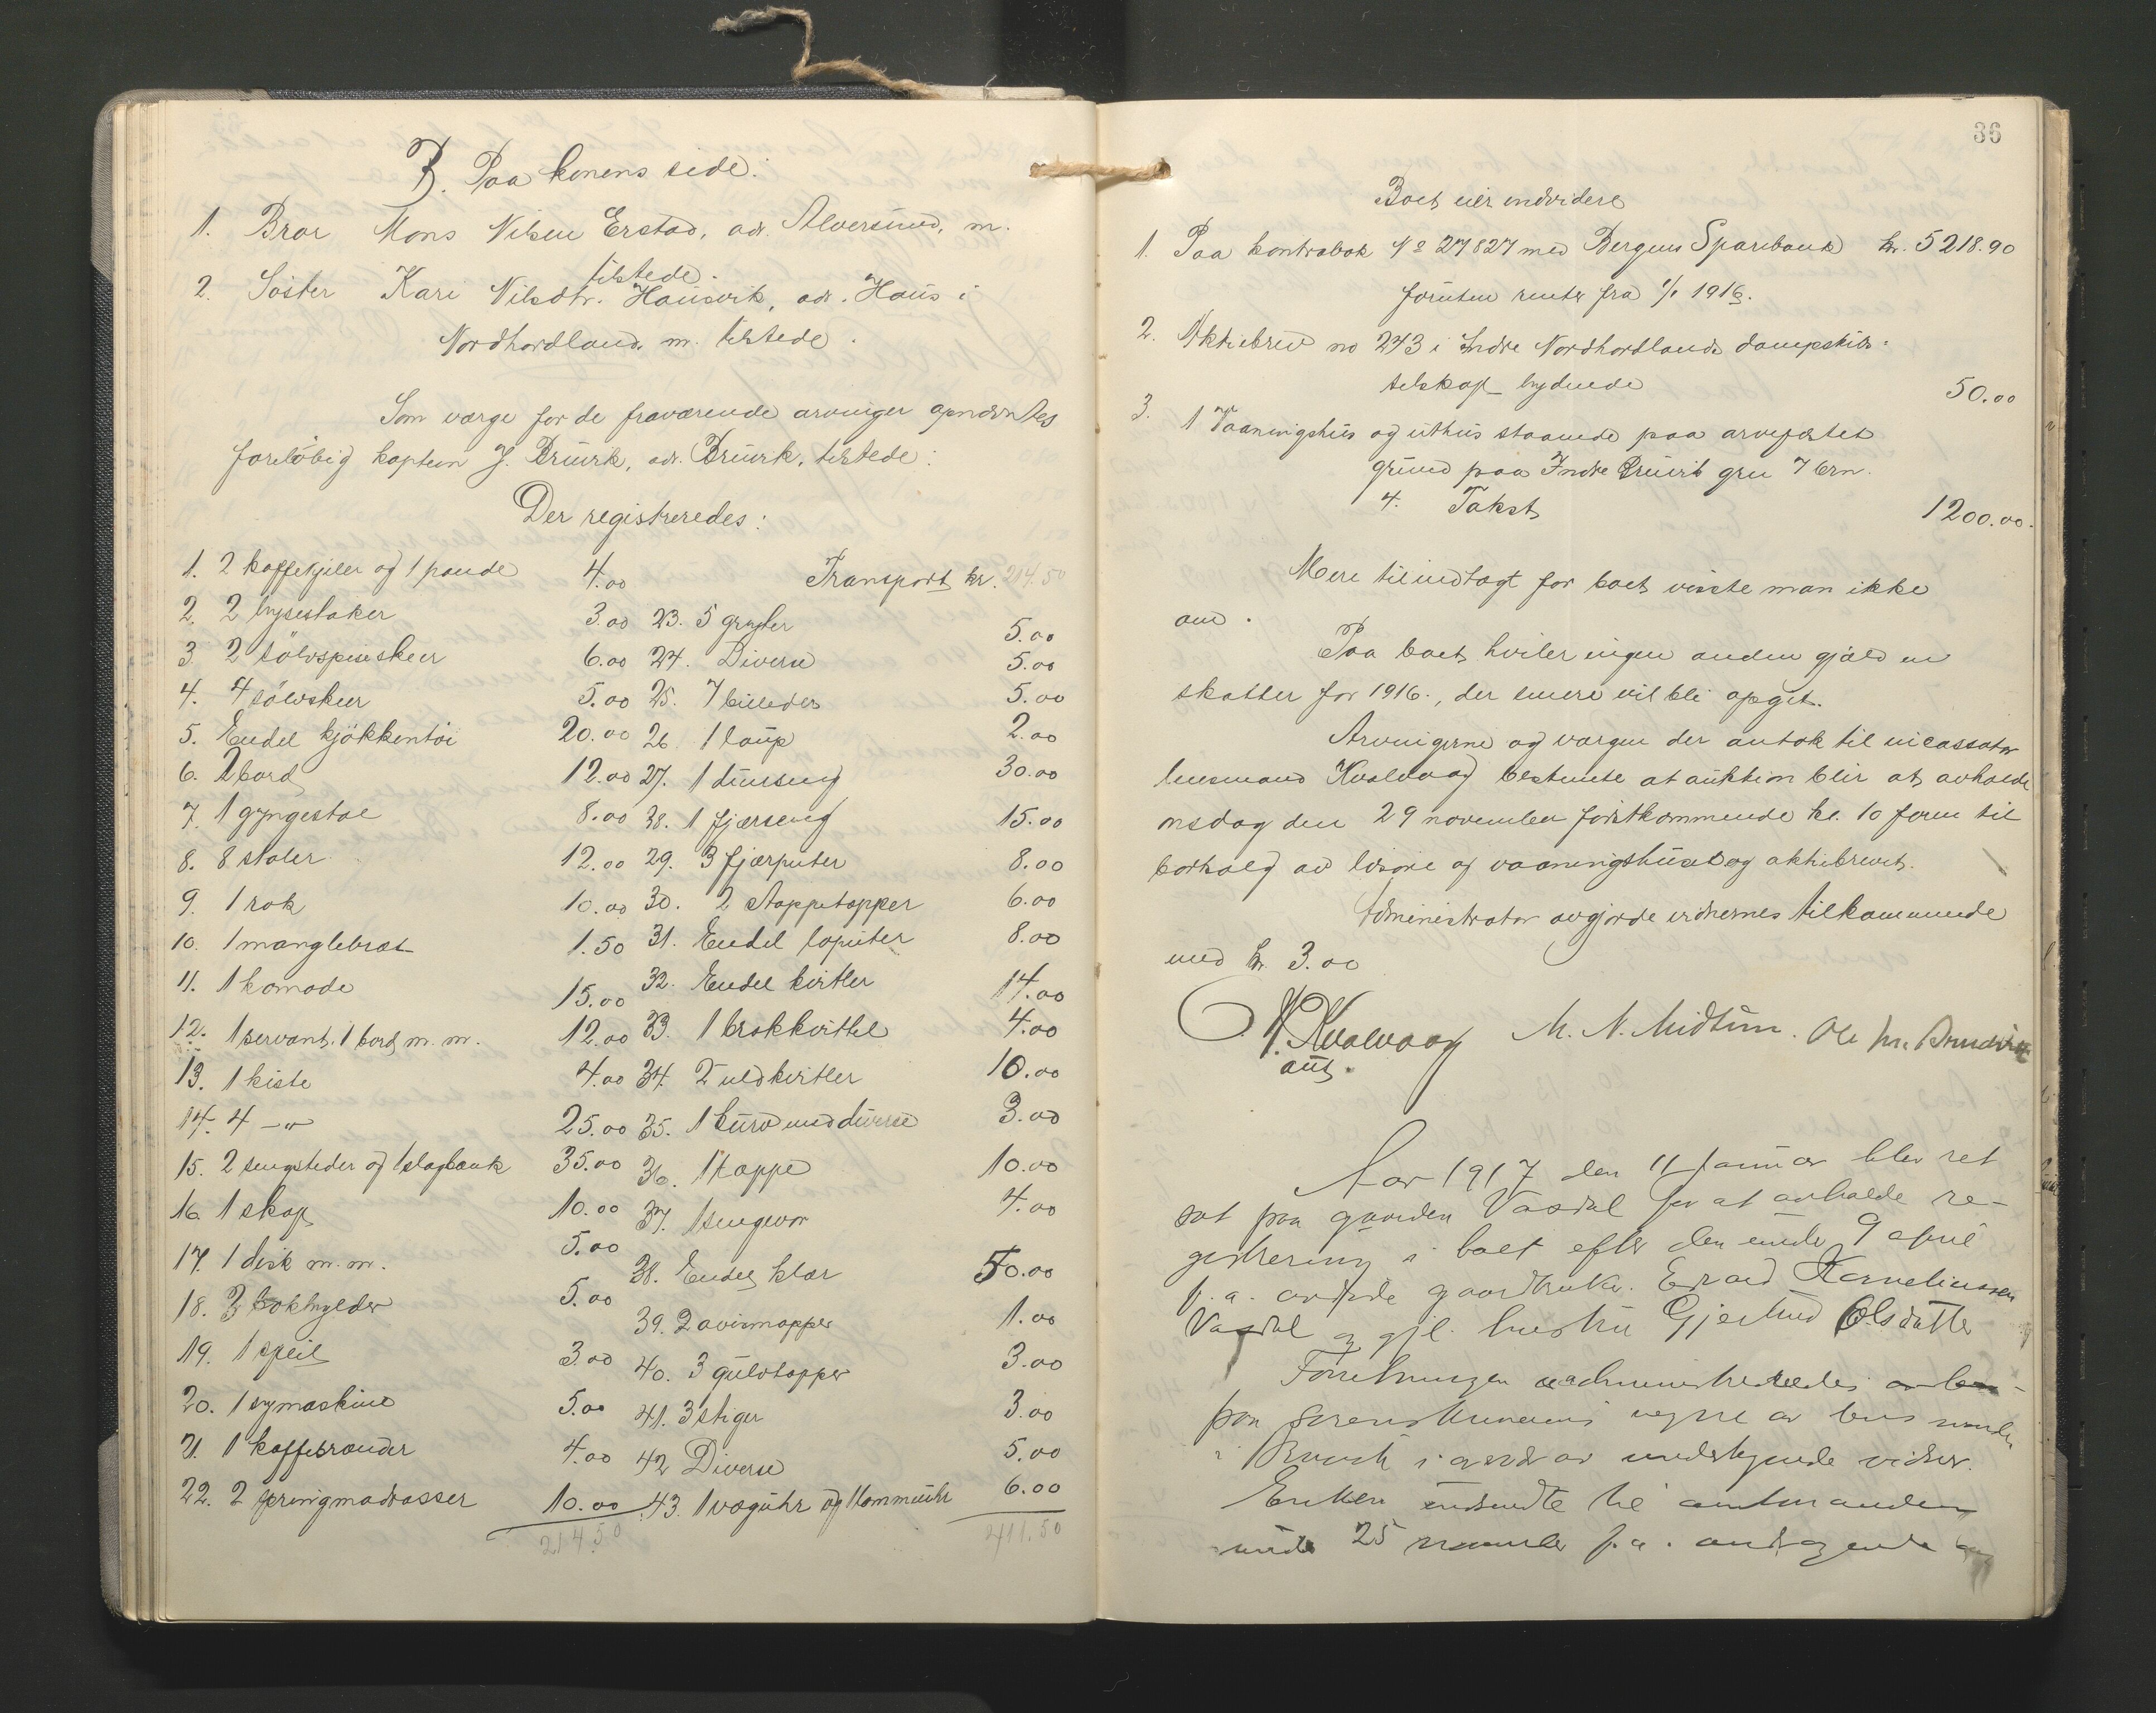 B. Paa konens side:
1. Bror Mons Nilsen Erstad, adr. Alversund, m.
tilstede.
2. Søster Kari Nilsdtr. Hausvik, adr. Haus i
Nordhordland. m. tilstede.
Som værge for de fraværende arvinger opnævntes
foreløbig kaptein J. Bruvik, adr. Bruvik, tilstede:
Der registreredes:
1. 2 kaffekjeler og 1 pande 4.00
2. 2 lysestaker 3.00
3. 2 sölvspiseskeer 6.00
4. 4 sölvskeer 5.00
5. Endel kjökkentöi 20.00
6. 2 bord 12.00
7. 1 gyngestol 8.00
8. 8 stoler 12.00
9. 1 rok 10.00
10. 1 manglebræt 1.50
11. 1 komode 15.00
12. 1 servant, 1 bord m. m. 12.00
13. 1 kiste 4.00
14. 4 -"- 25.00
15. 2 sengsteder og 1 slagbænk 35.00
16. 1 skap 10.00
17. 1 disk m. m. 5.00
18. 2 bokhylder 5.00
19. 1 speil 3.00
20. 1 symaskine 5.00
21. 1 kaffebrænder 4.00
22. 2 springmadrasser 10.00
214.50
Transport kr. 214.50
23. 5 gryter 5.00
24. Diverse 5.00
25. 7 billeder 5.00
26. 1 laup 2.00
27. 1 dunseng 30.00
28. 1 fjærseng 15.00
29. 3 fjærputer 8.00
30. 2 Stoppetæpper 6.00
31. Endel loputer 8.00
32. Endel kvitler 14.00
33. 1 brokkvittel 4.00
34. 2 uldkvitler 10.00
35. 1 kurv med diverse 3.00
36. 1 tæppe 10.00
37. 1 sengevor 4.00
38. Endel klær 50.00
39. 2 avismapper 1.00
40. 3 gulvtæpper 3.00
41. 3 stiger 3.00
42 Diverse 5.00
43. 1 væguhr og 1 lommeuhr 6.00
411.50
36
Boet eier endvidere
1. Paa kontrabok No 27827 med Bergens Sparebank kr. 5218.90
foruten renter fra 1/1 1916.
2. Aktiebrev no 243 i Indre Nordhordlands dampskibs-
selskap lydende 50.00
3. 1 Vaaningshus og uthus staaende paa arvefæstet
grund paa Indre Bruvik gno 7 brn.
4. Takst 1200.00.
Mere tilindtægt for boet visste man ikke
om.
Paa boet hviler ingen anden gjæld en
skatter for 1916., der senere vil bli opgit.
Arvingerne og værgen der antok til incassator
lensmand Kvalvaag bestemte at auktion blir at avholde
onsdag den 29 november førstkommende kl. 10 form til
bortsalg av løsøre og vaaningshuset og aktiebrevet.
Administrator avgjorde vidnernes tilkommende
med kr. 3.00
H. Kvalvaag M. N. Midtun. Ole M. Bruvik
aut.
Aar 1917 den 11 januar blev ret
sat paa gaarden Vasdal for at avholde re-
gistrering i boet efter den under 9 april
f. a. avdøde gaardbruker Erard Korneliussen
Vasdal og gjl. hustru Gjertrud Olsdatter
Forretningen administreredes
paa sorenskriverens vegne av lensmanden
i Bruvik i nærvær av undertegnede vidner.
Enken indsendte til amtmanden
under 25 november f. a. andragende